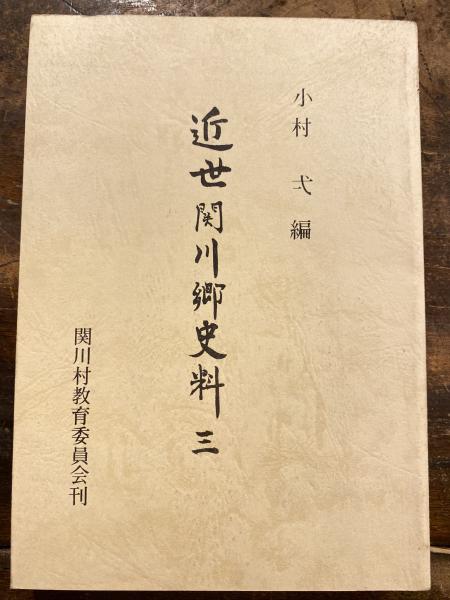 小村 弌 編
近世関川郷史料 三
関川村教育委員会刊